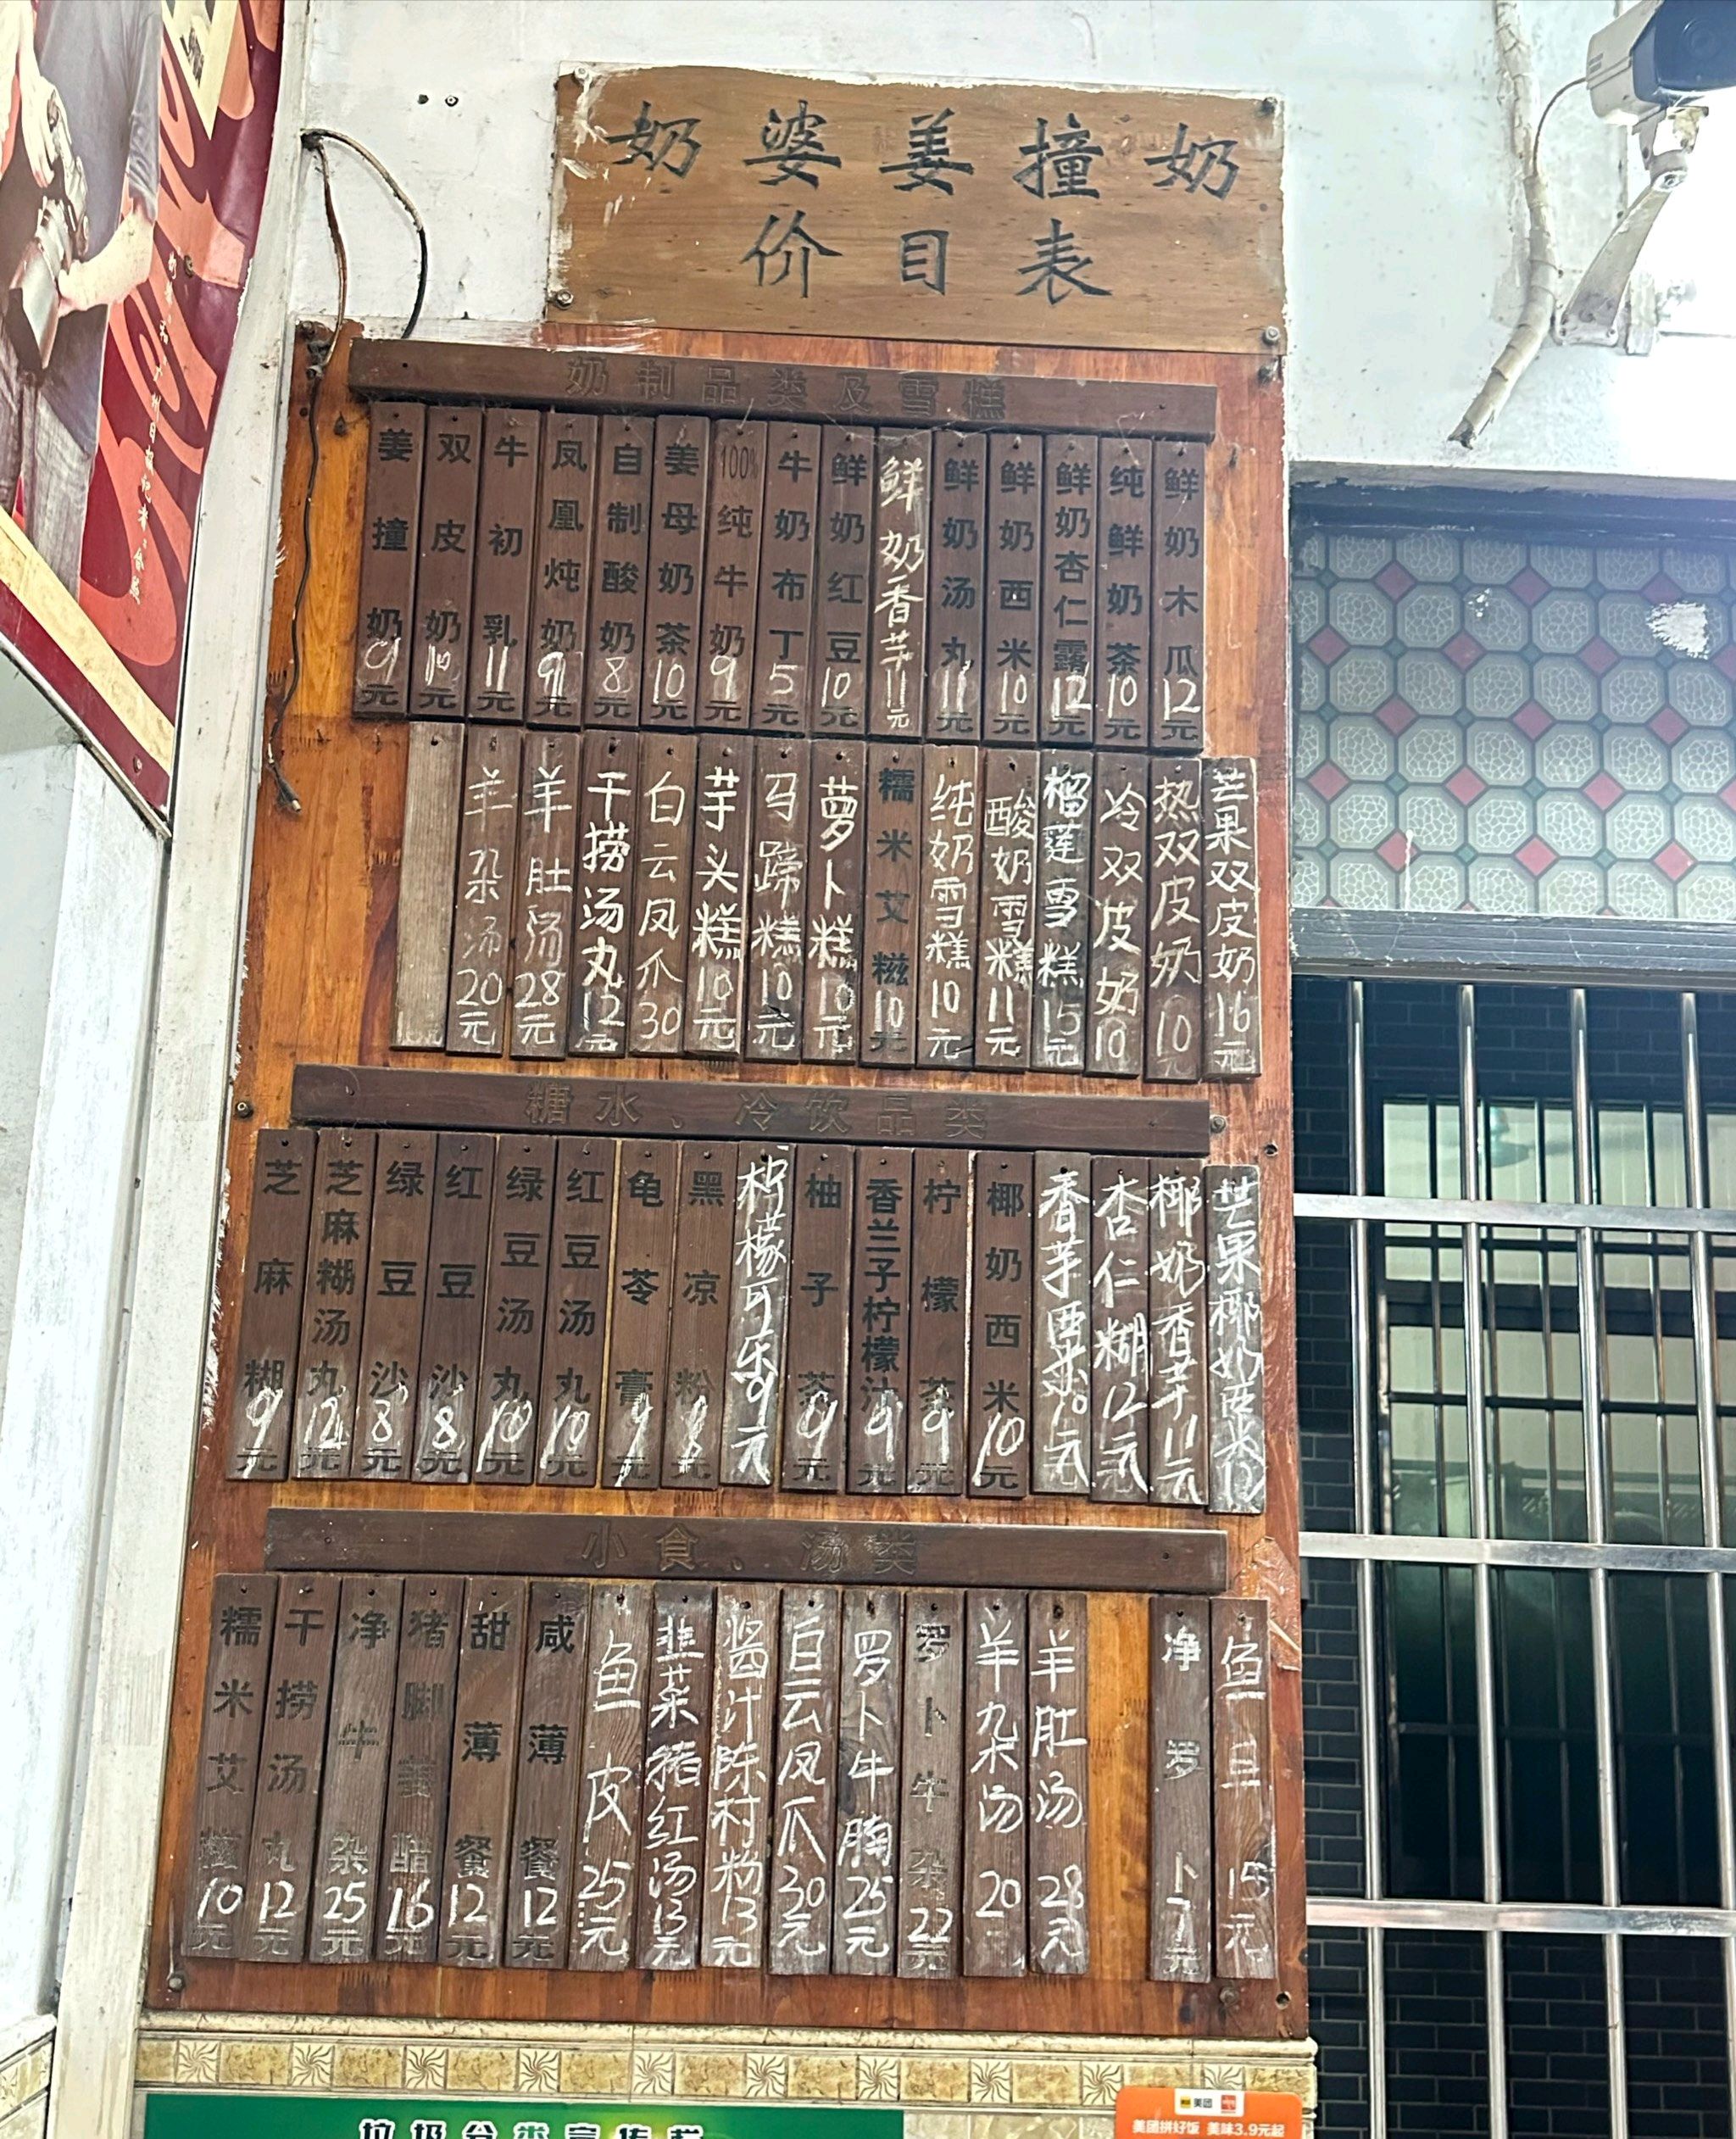 奶婆姜撞奶
价目表
奶制品类及雪糕
姜撞奶9元
双皮奶10元
牛初乳11元
凤凰炖奶9元
自制酸奶8元
姜母奶茶10元
100%纯牛奶9元
牛奶布丁5元
鲜奶红豆10元
鲜奶香芋11元
鲜奶汤丸11元
鲜奶西米10元
鲜奶杏仁露12元
纯鲜奶茶10元
鲜奶木瓜12元
羊杂汤20元
羊肚汤28元
干捞汤丸12元
白云凤爪30
芋头糕10元
马蹄糕10元
萝卜糕10元
糯米艾糍10元
纯奶雪糕10元
酸奶雪糕11元
榴莲雪糕15元
冷双皮奶10
热双皮奶10
芒果双皮奶16元
糖水、冷饮品类
芝麻糊9元
芝麻糊汤丸12元
绿豆沙8元
红豆沙8元
绿豆汤丸10元
红豆汤丸10元
龟苓膏9元
黑凉粉8元
柠檬可乐9元
柚子茶9元
香兰子柠檬汁9元
柠檬茶9元
椰奶西米10元
香芋西米10元
杏仁糊12元
椰奶香芋11元
芒果椰奶西米12
小食、汤类
糯米艾糍10元
干捞汤丸12元
净牛杂25元
猪脚姜醋16元
甜薄餐12元
咸薄餐12元
鱼皮25元
韭菜猪红汤13元
酱汁陈村粉13元
白云凤爪30元
罗卜牛腩25元
罗卜牛杂22元
羊杂汤20元
羊肚汤28元
净罗卜7元
鱼旦15元
垃圾分类宣传栏
美团
美团拼好饭 美味3.9元起